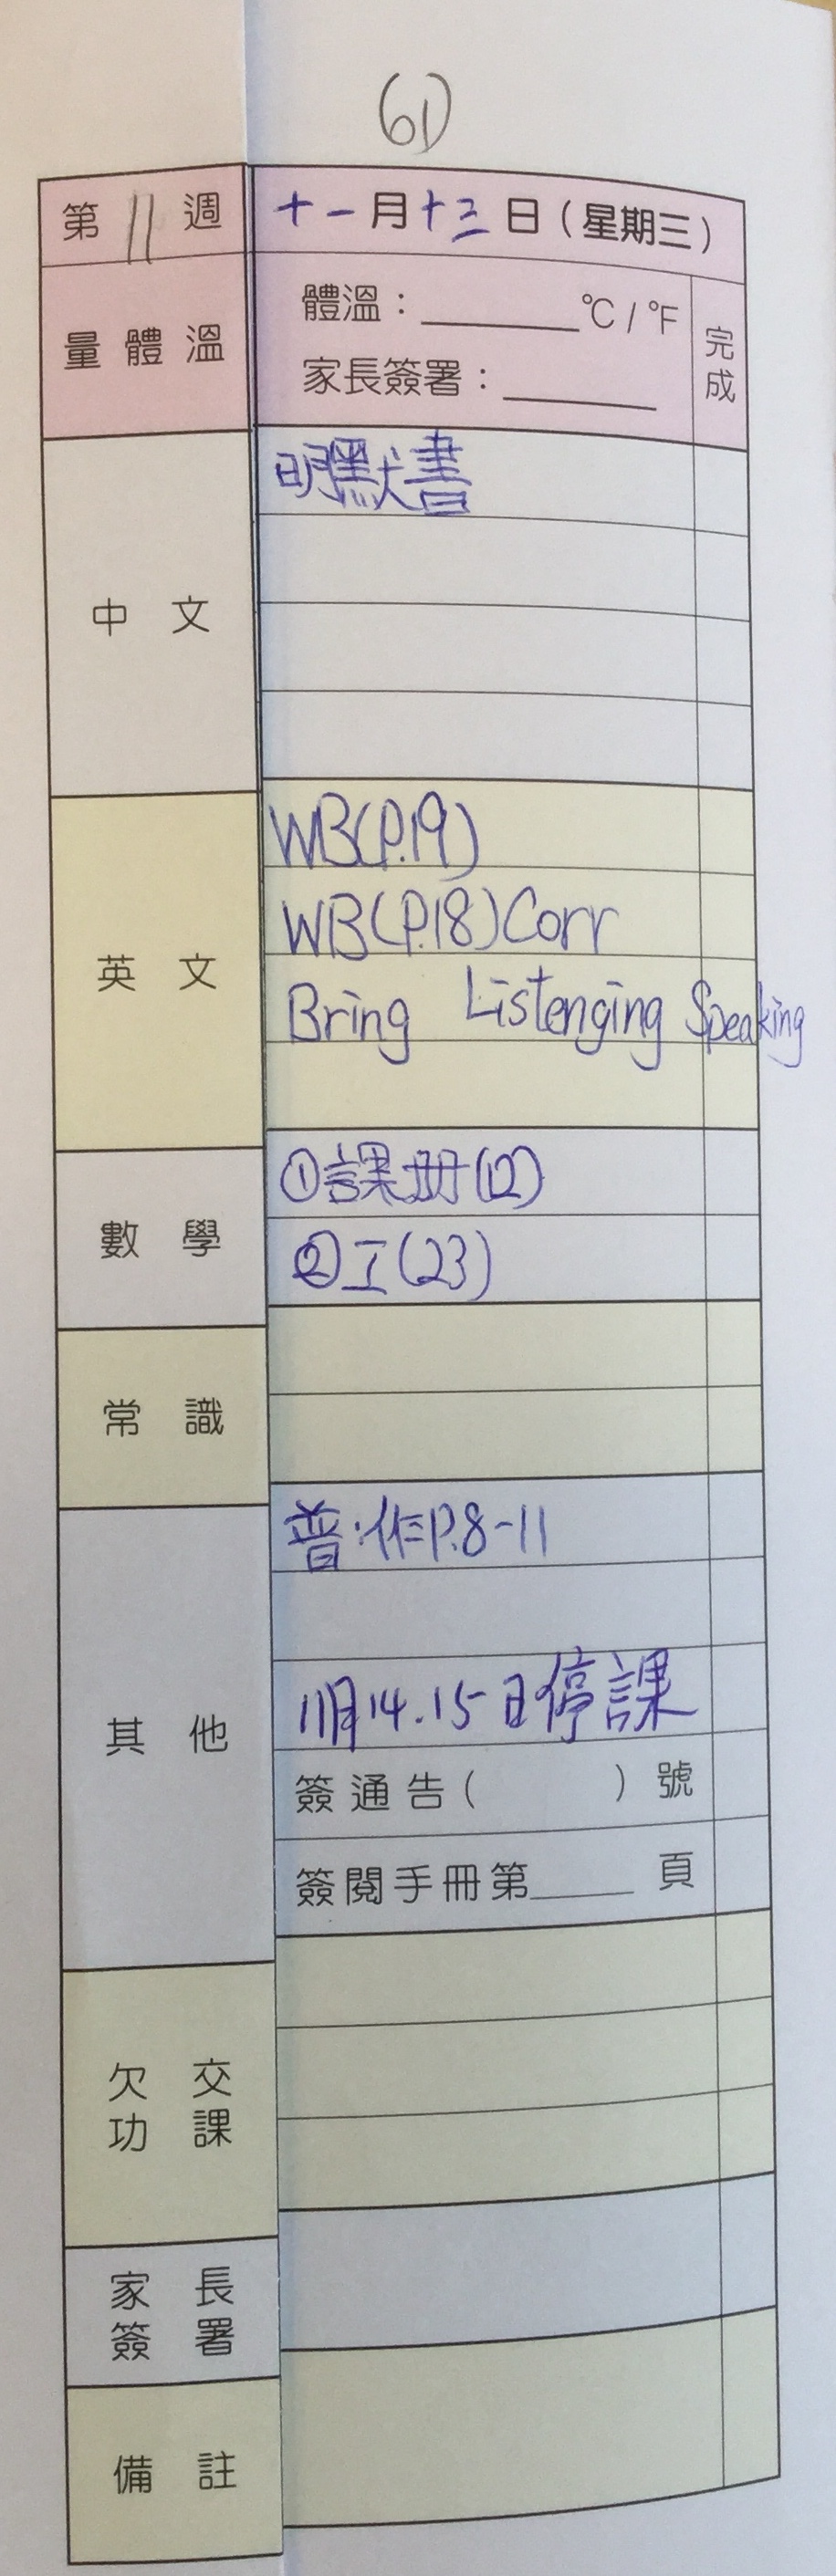 (61)
第 11 週 十一月十三日(星期三)
量體溫 體溫:______°C/°F 完成
家長簽署:______
中文 明默書
英文 WB(P.19)
WB(P.18)Corr
Bring Listenging Speaking
數學 ①課冊(12)
②工(23)
常識
其他 普:作P.8-11
11月14.15日停課
簽通告( )號
簽閱手冊第____頁
欠交功課
家長簽署
備註